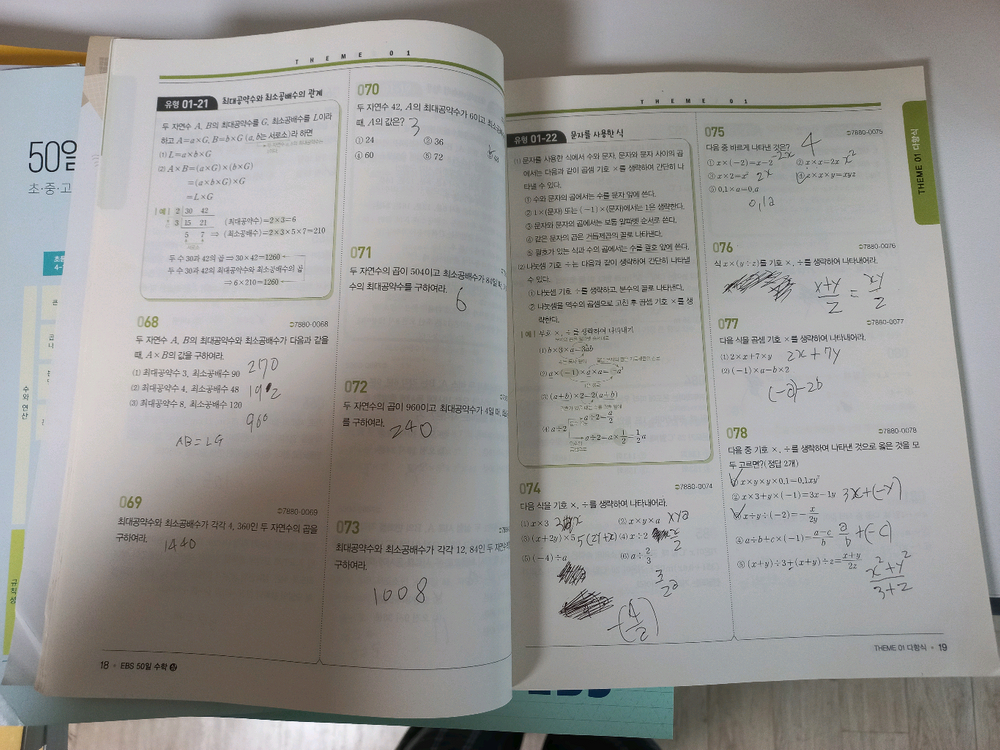 50일
초·중·고
수와 연산
THEME 01
유형 01-21 최대공약수와 최소공배수의 관계
두 자연수 A, B의 최대공약수를 G, 최소공배수를 L이라
하고 A=a×G, B=b×G (a, b는 서로소)라 하면
(1) L=a×b×G
(2) A×B=(a×G)×(b×G)
=(a×b×G)×G
=L×G
[예] 2 30 42
3 15 21 (최대공약수)=2×3=6
5 7 ⇒ (최소공배수)=2×3×5×7=210
두 수 30과 42의 곱 ⇒ 30×42=1260
두 수 30과 42의 최대공약수와 최소공배수의 곱
⇒ 6×210=1260
068
7880-0068
두 자연수 A, B의 최대공약수와 최소공배수가 다음과 같을
때, A×B의 값을 구하여라.
(1) 최대공약수 3, 최소공배수 90 270
(2) 최대공약수 4, 최소공배수 48 192
(3) 최대공약수 8, 최소공배수 120
960
AB=LG
069
7880-0069
최대공약수와 최소공배수가 각각 4, 360인 두 자연수의 곱을
구하여라. 1440
18 • EBS 50일 수학 상
070
두 자연수 42, A의 최대공약수가 6이고
때, A의 값은? 3
① 24 ② 36
④ 60 ⑤ 72
071
두 자연수의 곱이 504이고 최소공배수가 84일
수의 최대공약수를 구하여라.
6
072
두 자연수의 곱이 960이고 최대공약수가 4일 때,
를 구하여라. 240
073
최대공약수와 최소공배수가 각각 12, 84인 두
구하여라.
1008
THEME 01
유형 01-22 문자를 사용한 식
(1) 문자를 사용한 식에서 수와 문자, 문자와 문자 사이의 곱
에서는 다음과 같이 곱셈 기호 ×를 생략하여 간단히 나
타낼 수 있다.
① 수와 문자의 곱에서는 수를 문자 앞에 쓴다.
② 1×(문자) 또는 (-1)×(문자)에서는 1은 생략한다.
③ 문자와 문자의 곱에서는 보통 알파벳 순서로 쓴다.
④ 같은 문자의 곱은 거듭제곱의 꼴로 나타낸다.
⑤ 괄호가 있는 식과 수의 곱에서는 수를 괄호 앞에 쓴다.
(2) 나눗셈 기호 ÷는 다음과 같이 생략하여 간단히 나타낼
수 있다.
① 나눗셈 기호 ÷를 생략하고, 분수의 꼴로 나타낸다.
② 나눗셈을 역수의 곱셈으로 고친 후 곱셈 기호 ×를 생
략한다.
[예] 부호 ×, ÷를 생략하여 나타내기
(1) b×3×a=3ab
(2) a×(-1)×a×a=-a³
(3) (a+b)×2=2(a+b)
(4) a÷2 a÷2=a/2
a÷2=a×1/2=1/2a
074
7880-0074
다음 식을 기호 ×, ÷를 생략하여 나타내어라.
(1) x×3 (2) x×y×a xya
(3) (x+2y)×5 (4) x÷2 x/2
(5) (-4)÷a (6) a÷2/3
3/2a
075
7880-0075
다음 중 바르게 나타낸 것은? 4
① x×(-2)=x-2 -2x ② x×x=2x x²
③ x×2=x² 2x ④ x×x×y=xyz
⑤ 0.1×a=0.a
0.1a
076
7880-0076
식 x×(y÷z)를 기호 ×, ÷를 생략하여 나타내어라.
x+y/z = xy/z
077
7880-0077
다음 식을 곱셈 기호 ×를 생략하여 나타내어라.
(1) 2×x+7×y 2x+7y
(2) (-1)×a-b×2
(-a)-2b
078
7880-0078
다음 중 기호 ×, ÷를 생략하여 나타낸 것으로 옳은 것을 모
두 고르면? (정답 2개)
① x×y×y×0.1=0.1xy²
② x×3+y×(-1)=3x-1y 3x+(-y)
③ x÷y÷(-2)=-x/2y
④ a÷b+c×(-1)=a-c/b a/b+(-c)
⑤ (x+y)÷3+(x+y)÷z=x+y/2z x²+y²/3+z
THEME 01 다항식
THEME 01 다항식 • 19